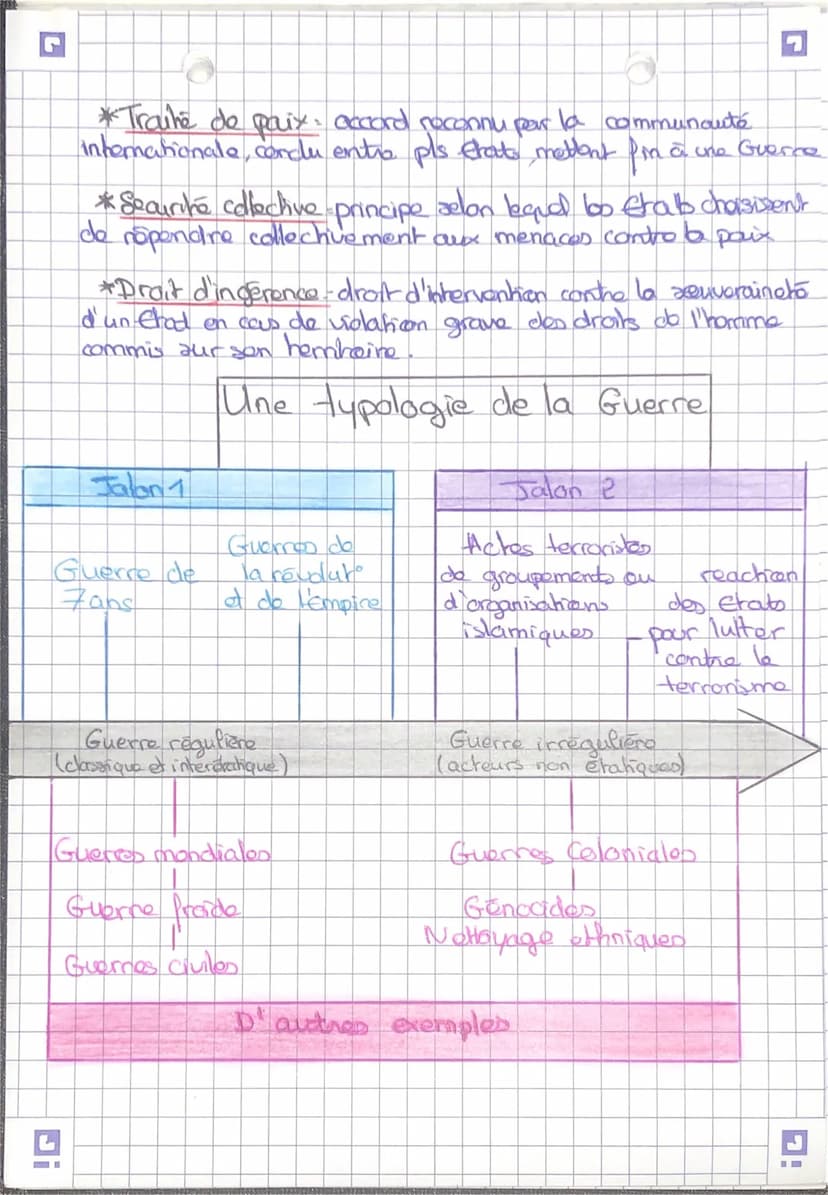 *Traité de paix : accord reconnu par la communauté
internationale, conclu entre pls états, mettent fin à une Guerre
*Sécurité collective : principe selon lequel les états choisissent
de répondre collectivement aux menaces contre la paix
*Droit d'ingérence : droit d'intervention contre la souveraineté
d'un état en cas de violation grave des droits de l'homme
commis sur son territoire.
Une typologie de la Guerre
Jalon 1
Jalon 2
Guerre de
7ans
Guerres de
la révolut°
et de l'Empire
Actes terroristes
de groupements ou
d'organisations
islamiques
reaction
des états
pour lutter
contre le
terrorisme
Guerre régulière
(classique et interétatique)
Guerre irrégulière
(acteurs non étatiques)
Gueres mondiales
Guerre froide
Guerres civiles
Guerres Coloniales
Génocides
Nettoyage ethniques
D'autres exemples